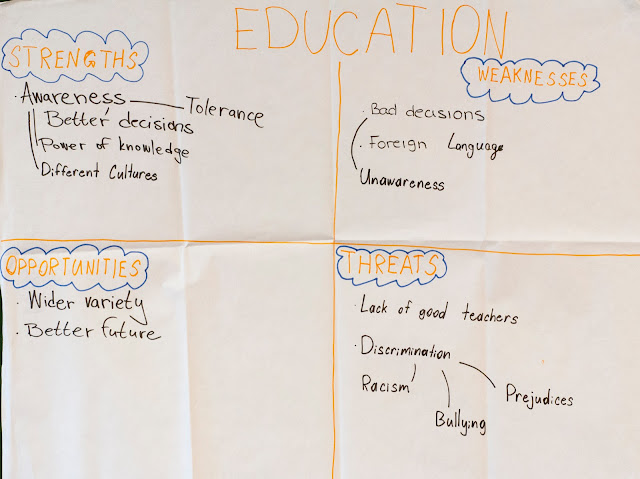 EDUCATION
STRENGTHS
· Awareness Tolerance
Better decisions
Power of knowledge
Different Cultures
WEAKNESSES
· Bad decisions
· Foreign Language
Unawareness
OPPORTUNITIES
· Wider variety
· Better future
THREATS
· Lack of good teachers
· Discrimination
Racism
Bullying
Prejudices